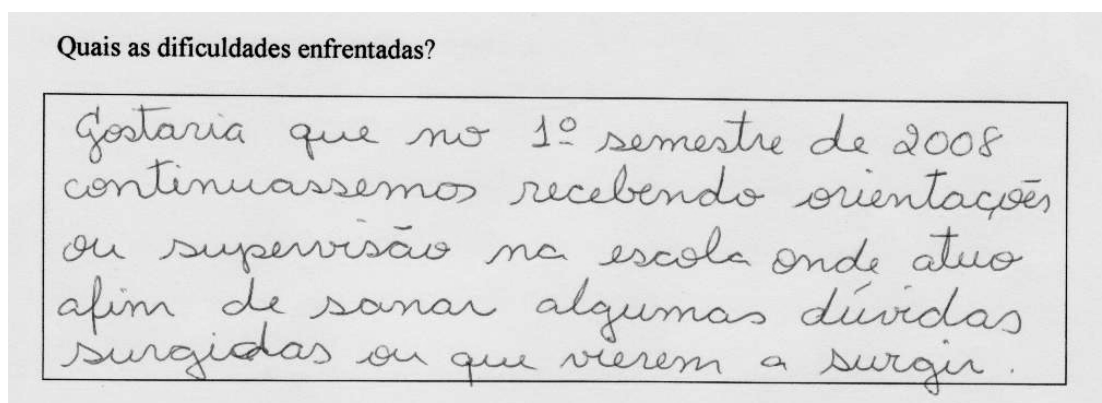 Quais as dificuldades enfrentadas?
Gostaria que no 1º semestre de 2008
continuassemos recebendo orientações
ou supervisão na escola onde atuo
afim de sanar algumas dúvidas
surgidas ou que vierem a surgir.